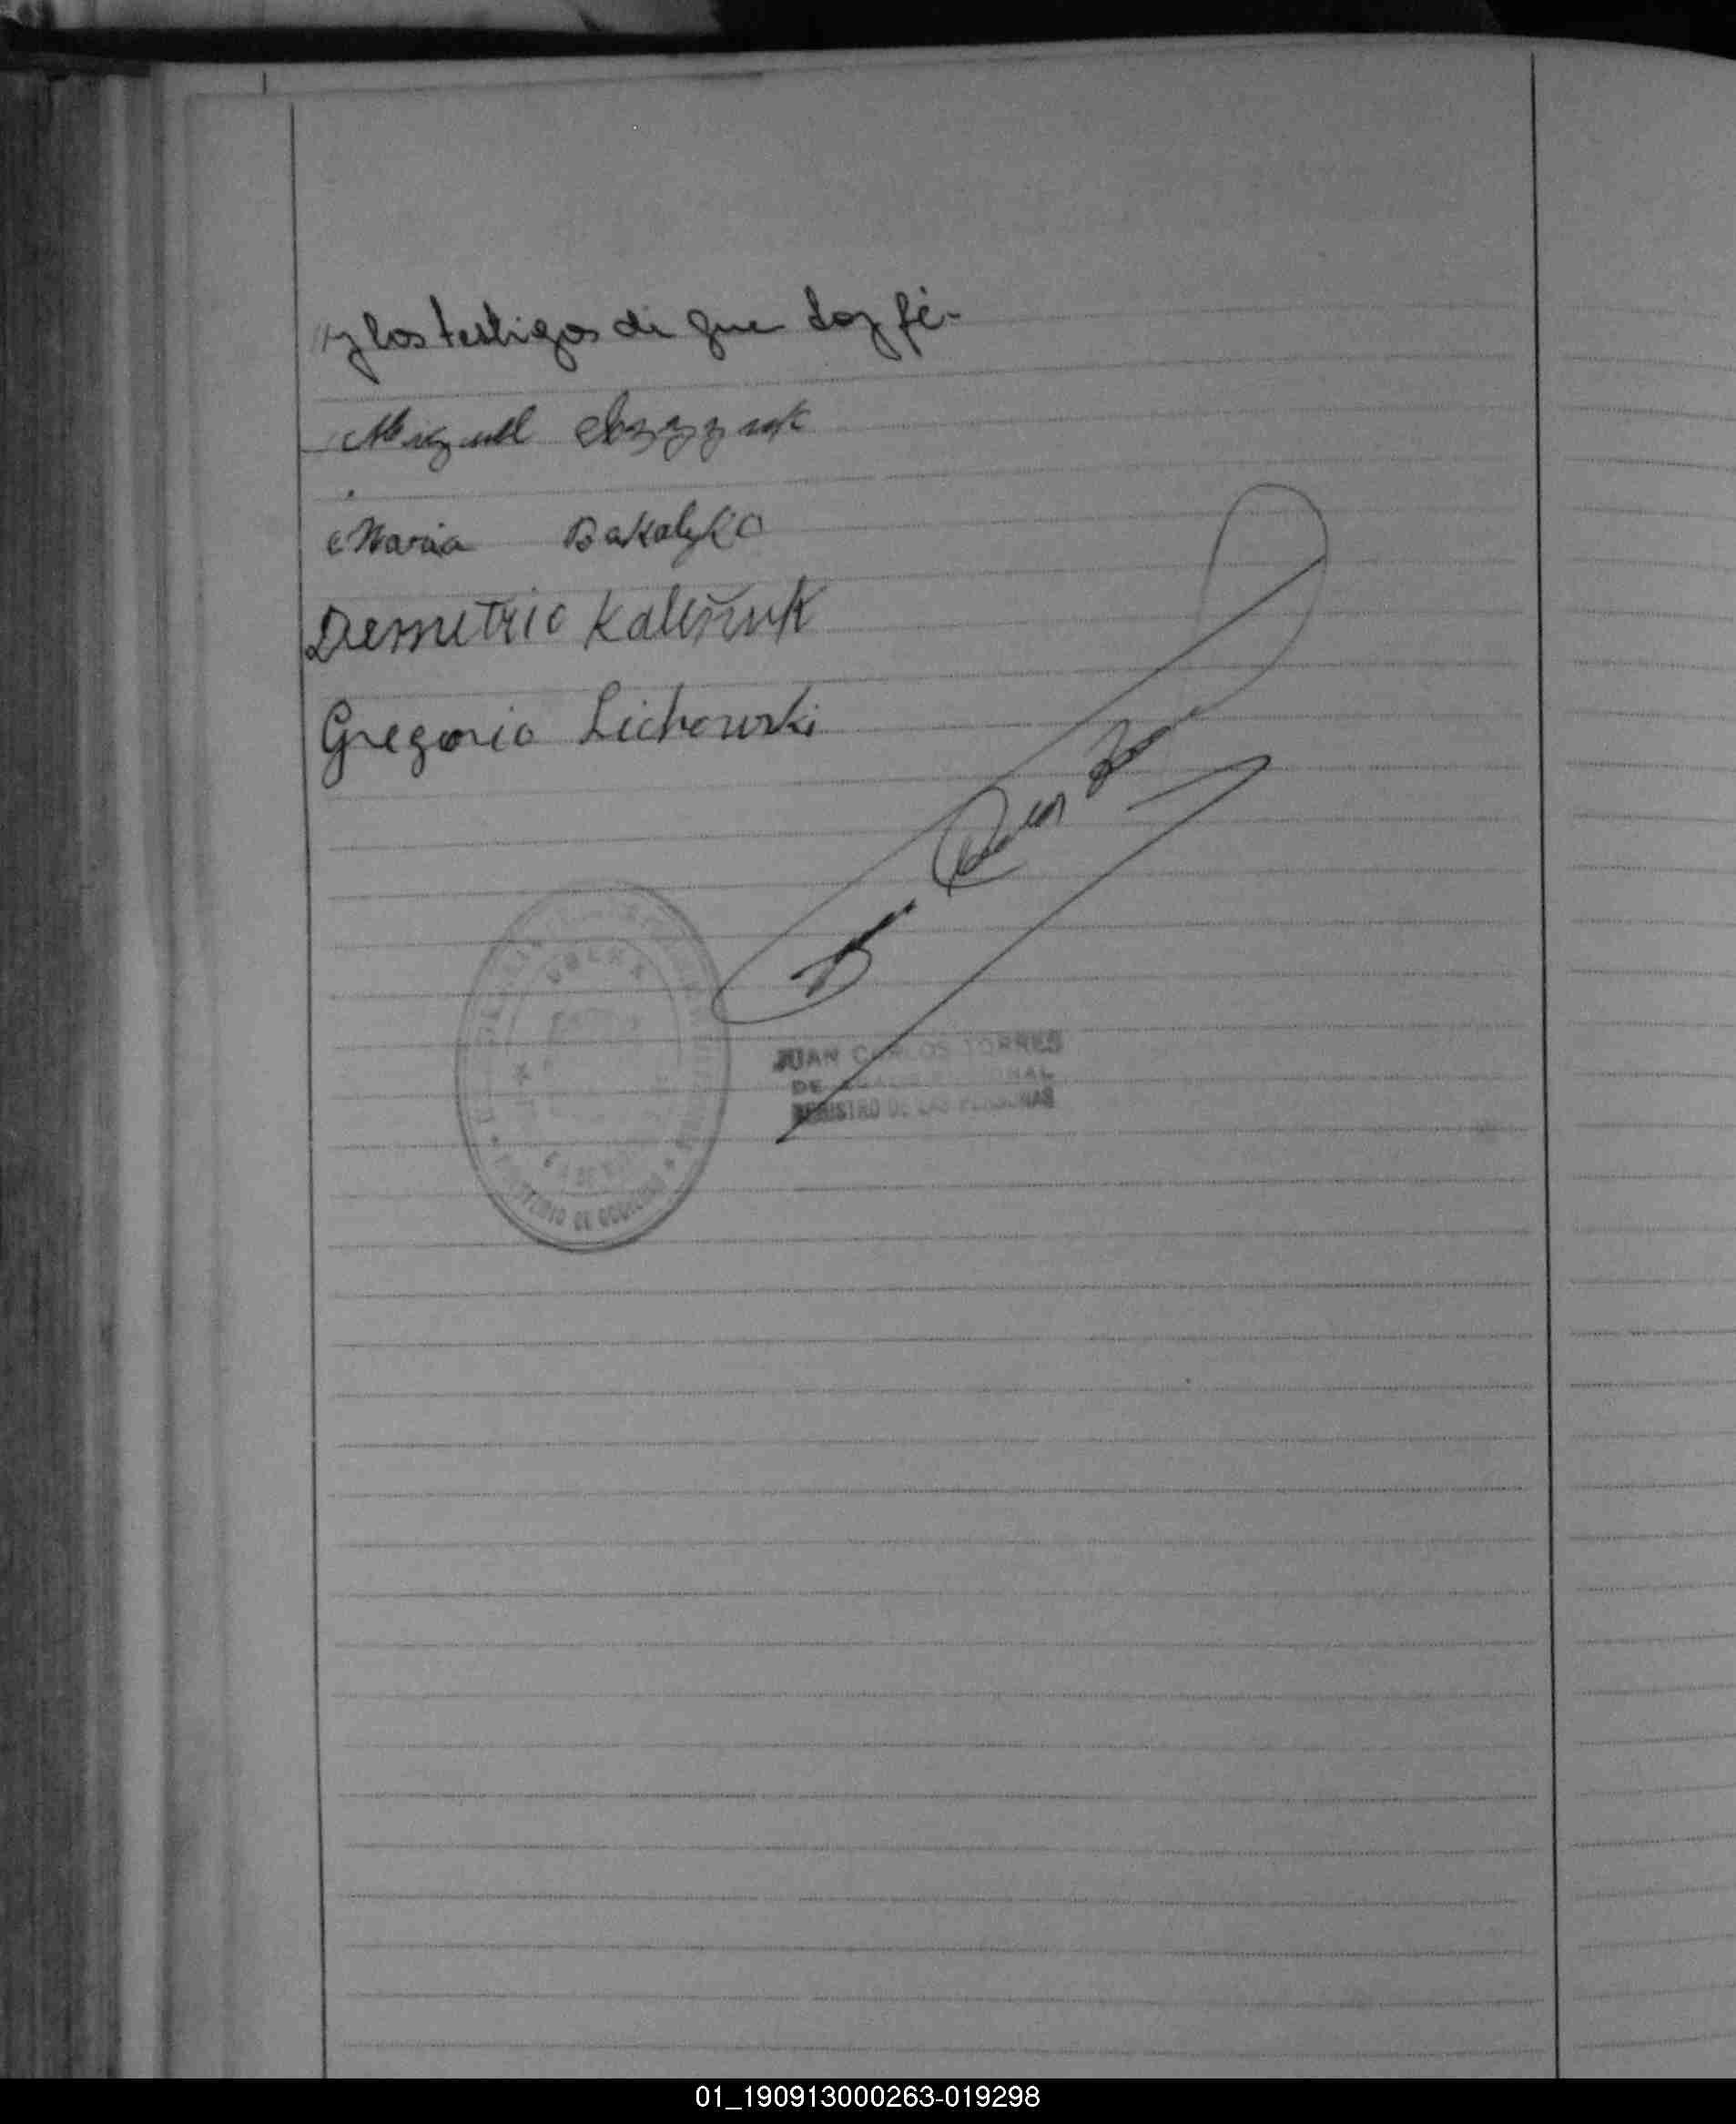 y los testigos de que doy fé.-
Miguel
Maria Bakalyko
Demetrio Kaliñuk
Gregorio Lichowski
OBERA
MINISTERIO DE GOBIERNO
JUAN CARLOS TORRES
DE
REGISTRO DE LAS PERSONAS
01_190913000263-019298